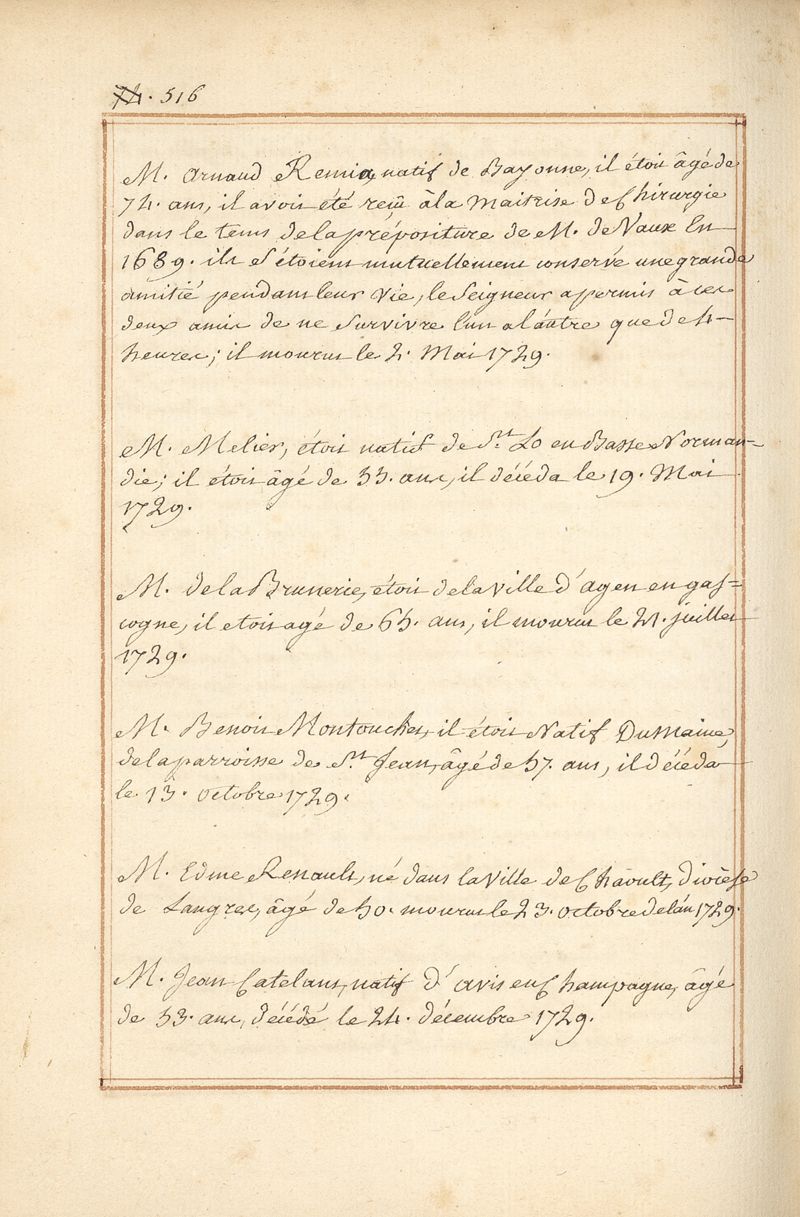 516
M. Arnaud Remia, natif de Bayonne, il étoit âgé de
74. ans, il avoit été reçu à la Maitrise de Chirurgie
dans le tems de la prépositure de M. de Vaux En
1689. ils s'étoient mutuellement conservé une grande
amitié pendant leur vie, le Seigneur a permis à ces
deux amis de ne survivre l'un a l'autre que de 4-
heures; il mourut le 2. Mai 1729.
M. Melier, étoit natif de St. Lo en Basse Norman-
die; il étoit âgé de 53. ans, il décéda le 19. Mai
1729.
M. de la Brunerie, étoit de la ville d'agen en gas=
cogne, il etoit agé de 65. ans, il mourut le 21. juillet
1729.
M. Benoit Montouchet, il étoit Natif Du Maine,
de la parroisse de St. Jean, âgé de 57. ans, il décéda
le 13. octobre 1729.
M. Edme Renault, né dans la Ville de Chaoult, diocèse
de Langres, âgé de 50. mourut le 23. octobre de l'an 1729.
M. Jean Catelans, natif d'avis en Champagne, âgé
de 53. ans, décédé le 24. décembre 1729.